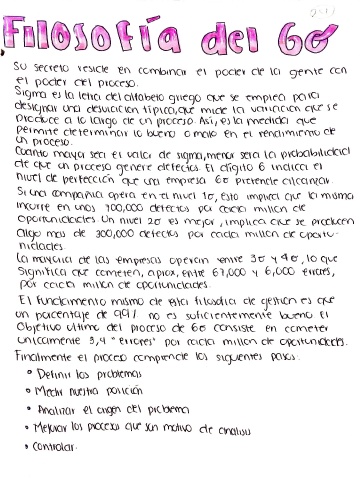 Filosofía del 6σ
Su secreto reside en combinar el poder de la gente con
el poder del proceso.
Sigma es la letra del alfabeto griego que se emplea para
designar una desviación típica, que mide la variación que se
produce a lo largo de un proceso Así, es la medida que
permite determinar lo bueno o malo en el rendimiento de
un proceso.
Cuanto mayor sea el valor de sigma, menor será la probabilidad
de que un proceso genere defectos. El dígito 6 indica el
nivel de perfección que una empresa 6σ pretende alcanzar.
Si una compañía opera en el nivel 1σ, esto implica que la misma
incurre en unos 700,000 defectos por cada millón de
oportunidades. Un nivel 2σ es mejor, implica que se producen
algo mas de 300,000 defectos por cada millón de oportu-
nidades.
La mayoría de las empresas operan entre 3σ y 4σ, lo que
significa que cometen, aprox, entre 67,000 y 6,000 errores,
por cada millón de oportunidades.
El fundamento mismo de esta filosofía de gestión es que
un porcentaje de 99% no es suficientemente bueno. El
objetivo último del proceso de 6σ consiste en cometer
únicamente 3,4 "errores" por cada millón de oportunidades.
Finalmente el proceso comprende los siguientes pasos:
• Definir los problemas
• Medir nuestra posición
• Analizar el origen del problema
• Mejorar los procesos que son motivo de análisis
• Controlar.